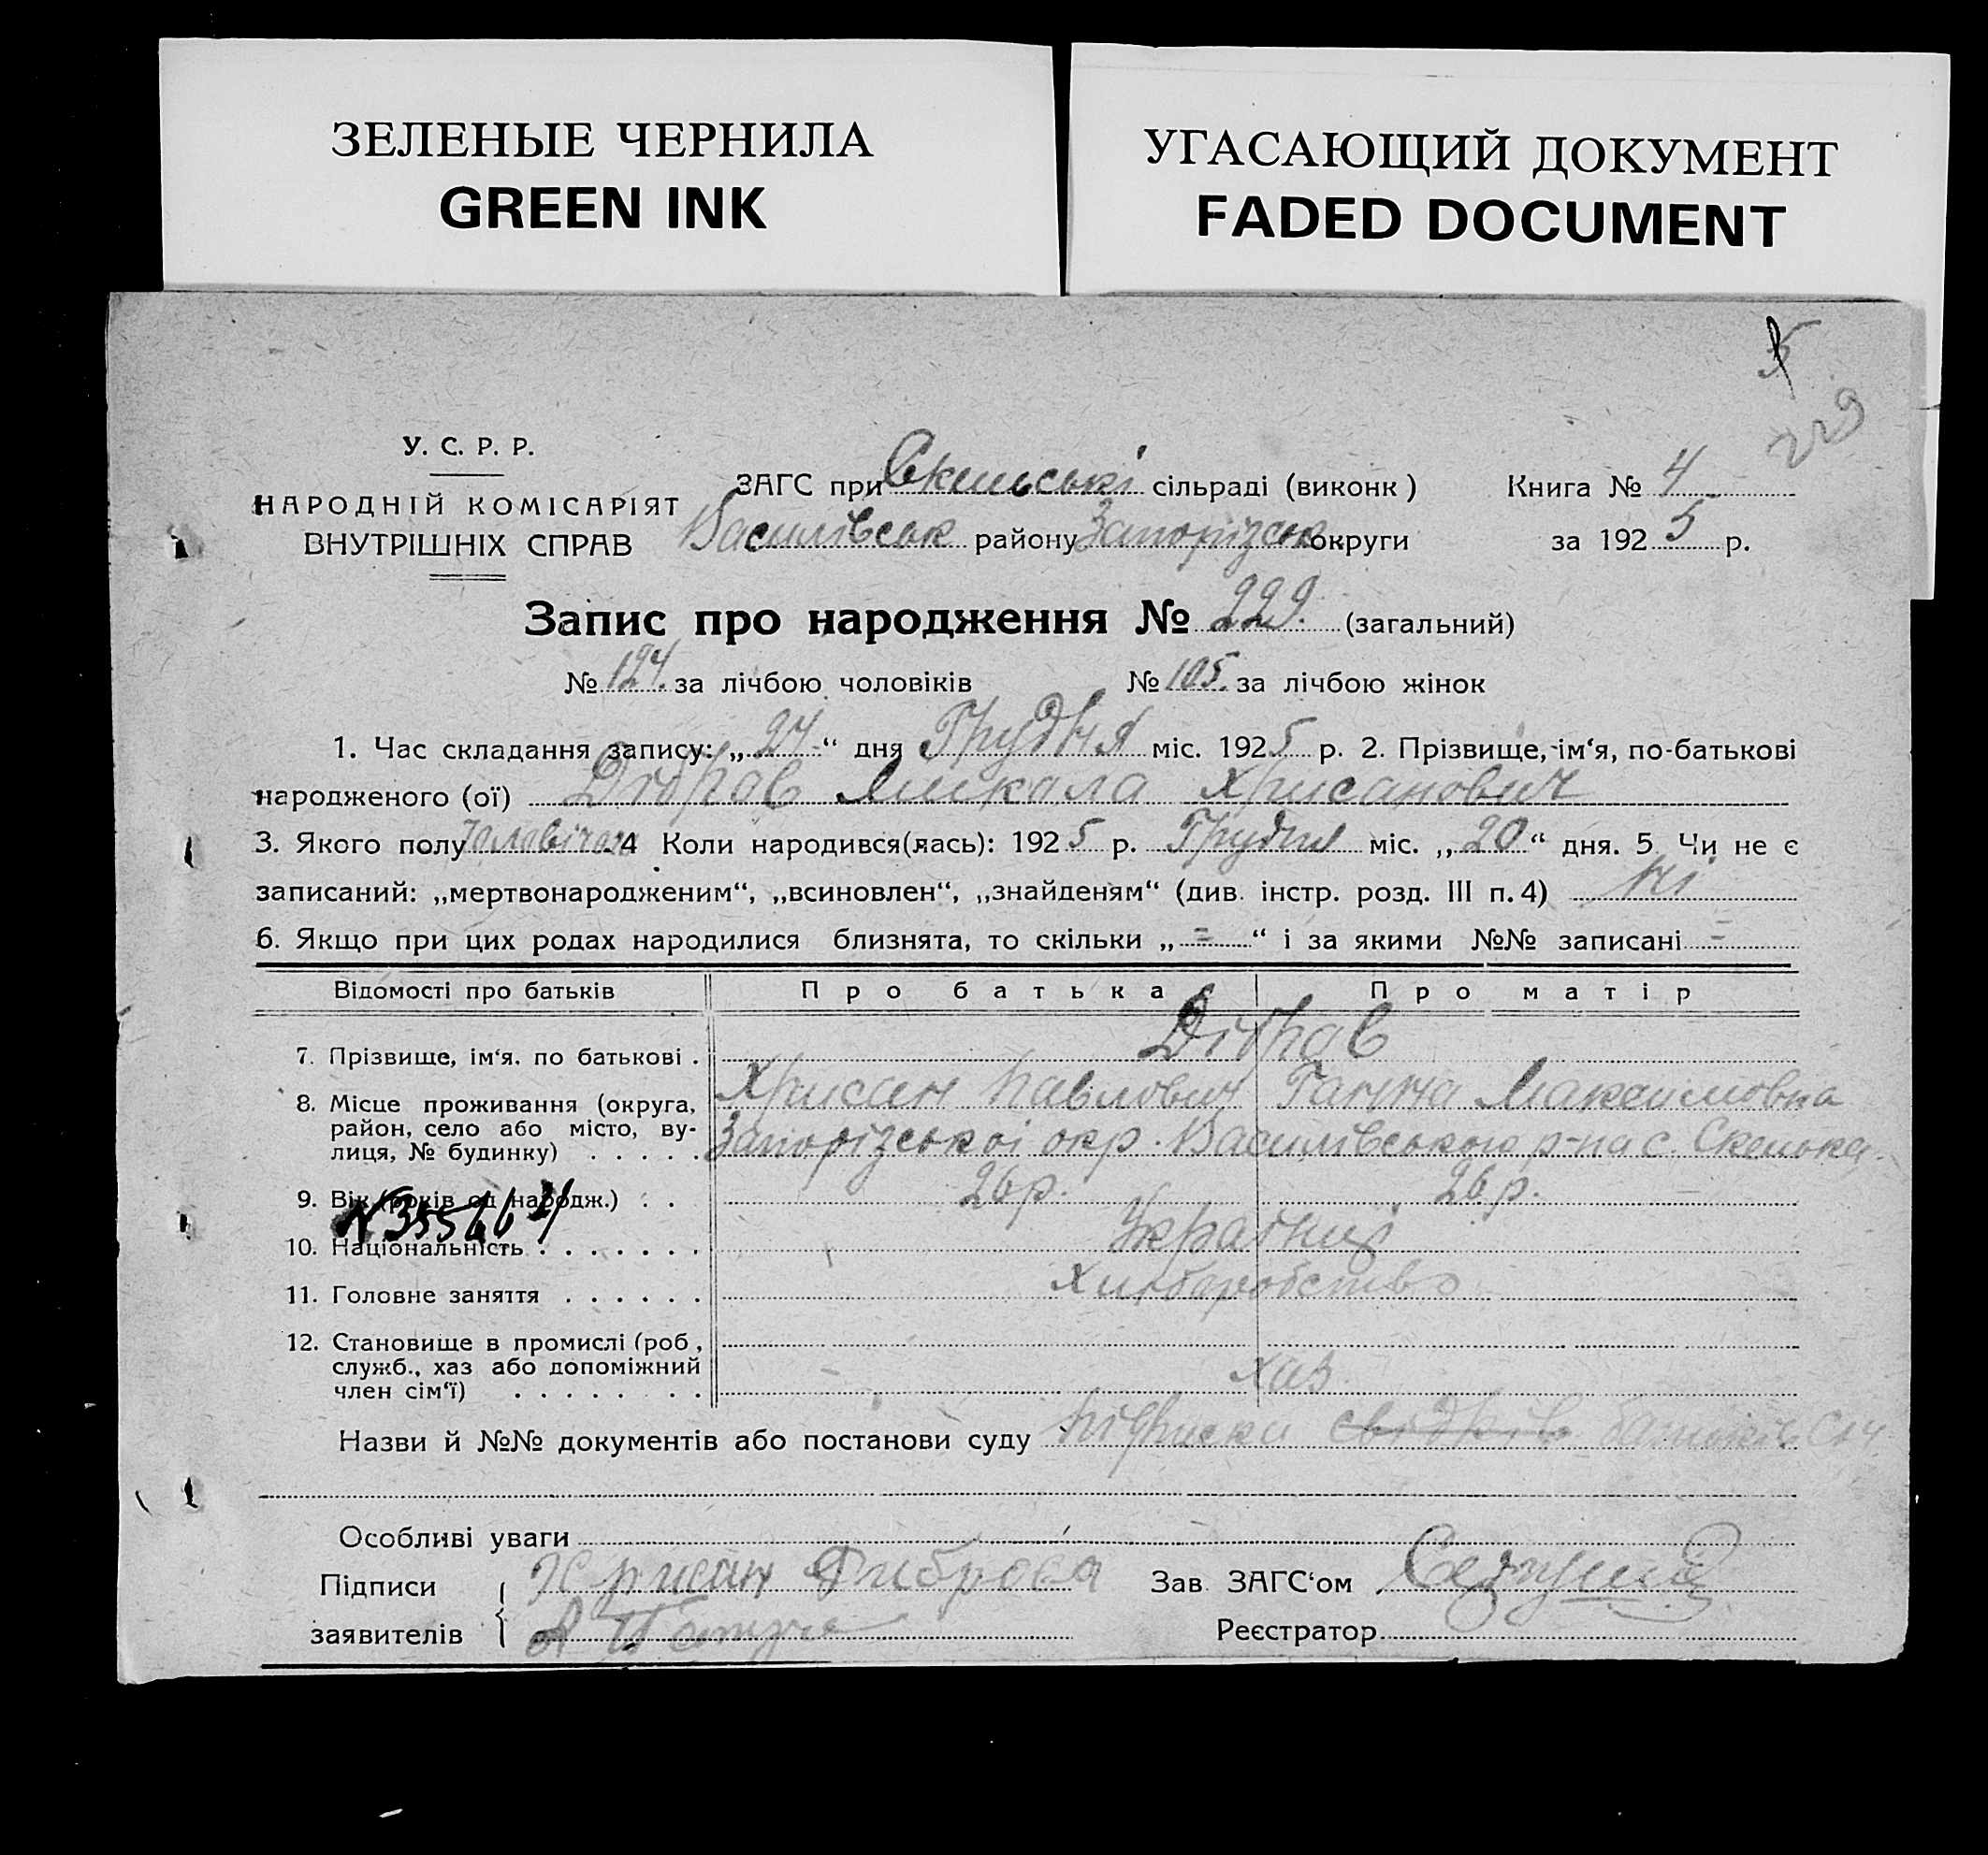 ЗЕЛЕНЫЕ ЧЕРНИЛА
GREEN INK
УГАСАЮЩИЙ ДОКУМЕНТ
FADED DOCUMENT
5
229
У. С. Р. Р.
НАРОДНІЙ КОМІСАРІЯТ
ВНУТРІШНІХ СПРАВ
ЗАГС при Скельські сільраді (виконк)
Василівськ району Запорізськ округи
Книга № 4
за 1925 р.
Запис про народження № 229. (загальний)
№ 124. за лічбою чоловіків № 105. за лічбою жінок
1. Час складання запису: „24“ дня Грудня міс. 1925 р. 2. Прізвище, ім‘я, по-батькові
народженого (ої) Дібров Микола Хрисанович
3. Якого полу 4 Коли народився(лась): 1925 р. Грудня міс. „20“ дня. 5 Чи не є
записаний: „мертвонародженим“, „всиновлен“, „знайденям“ (див. інстр. розд. III п. 4) Ні
6. Якщо при цих родах народилися близнята, то скільки „=“ і за якими №№ записані =
Відомості про батьків Про батька Про матір
7. Прізвище, ім‘я. по батькові . Дібров
Хрисан Павлович Ганна Максимовна
8. Місце проживання (округа,
район, село або місто, ву-
лиця, № будинку) . . . . . Запорізської окр. Василівського р-на с. Скелька.
9. Вік (років од народж.) . . 26 р. 26 р.
10. Національність . . . . . . . Українці
11. Головне заняття . . . . . . Хліборобство
12. Становище в промислі (роб,
служб., хаз або допоміжний
член сім‘ї) . . . . . . . хаз
Назви й №№ документів або постанови суду Підписки свідків батьків
Особливі уваги
Підписи
заявителів
Хрисан Диброва
Зав. ЗАГС‘ом
Реєстратор